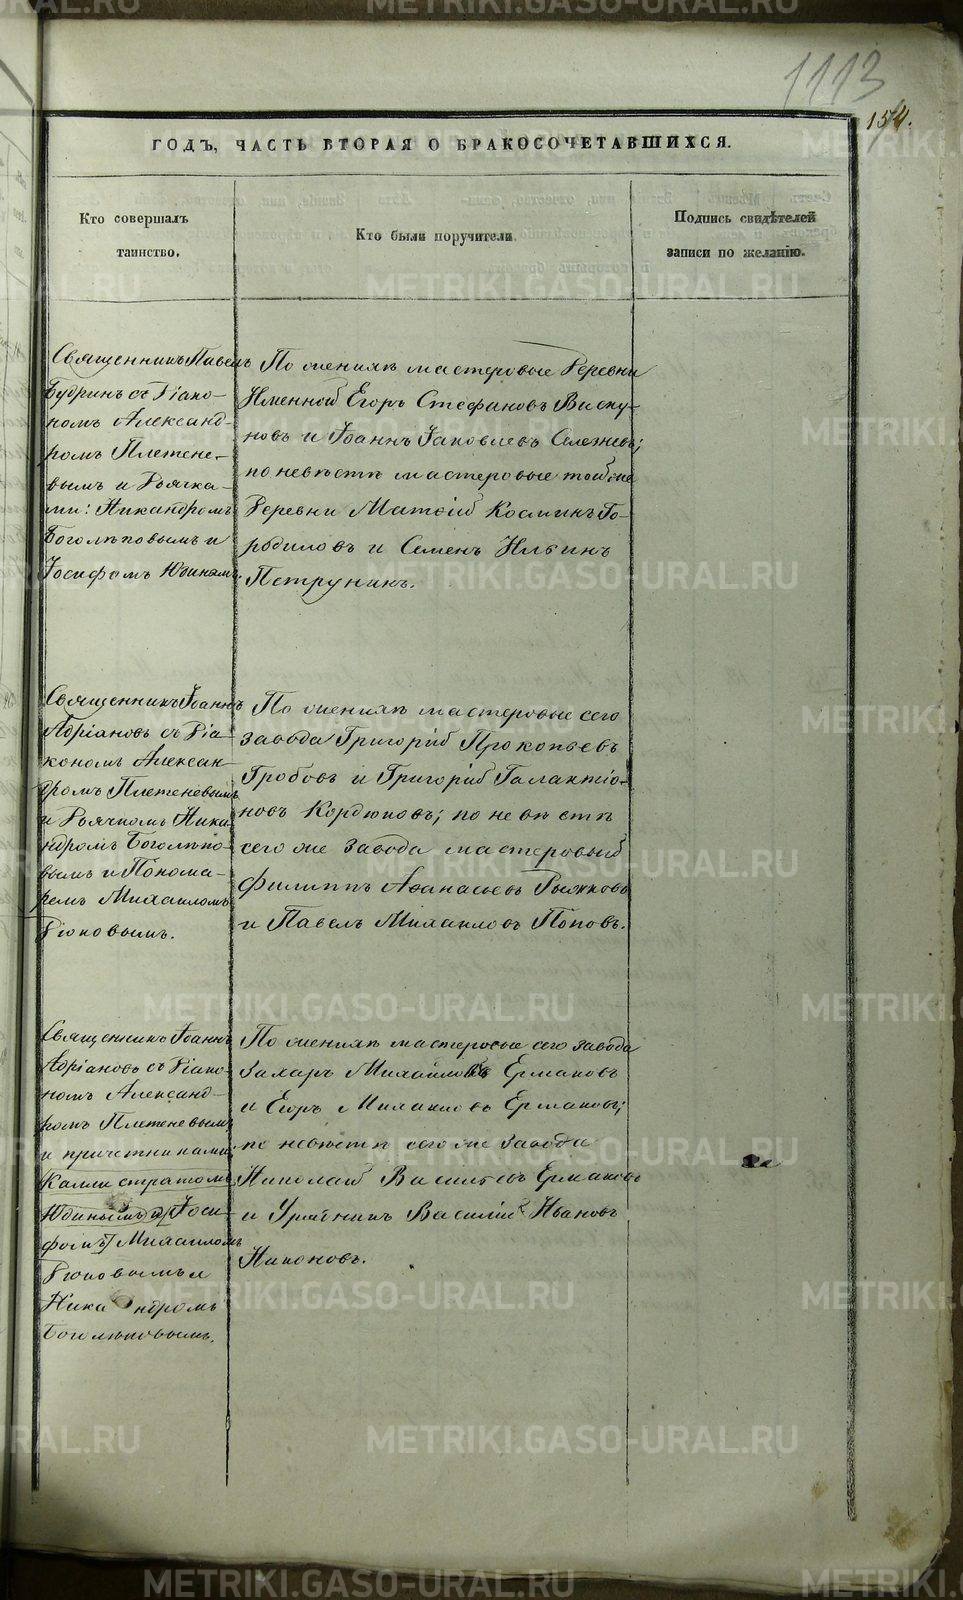 METRIKI.GASO-URAL.RU
1113
154.
ГОДЪ, ЧАСТЬ ВТОРАЯ О БРАКОСОЧЕТАВШИХСЯ.
Кто совершалъ
таинство.
Кто были поручители.
Подпись свидѣтелей
записи по желанію.
Священникъ Павелъ
Будринъ съ Діако-
номъ Александ-
ромъ Плетене-
вымъ и Дьячка-
ми: Никандромъ
Боголѣповымъ и
Іосифомъ Юдинымъ.
По женихѣ мастеровые деревни
Именной Егоръ Стефановъ Виску-
новъ и Іоаннъ Іаковлевъ Селезневъ;
по невѣстѣ мастеровые той же
деревни Матѳій Косминъ Го-
родиловъ и Семенъ Ильинъ
Петрунинъ.
Священникъ Іоаннъ
Адріановъ съ Діа-
кономъ Алексан-
дромъ Плетеневымъ
и Дьячкомъ Ника-
ндромъ Боголѣпо-
вымъ и Понома-
ремъ Михаиломъ
Дюковымъ.
По женихѣ мастеровые сего
завода Григорій Прокопьевъ
Гробовъ и Григорій Галактіо-
новъ Кордюковъ; по невѣстѣ
сего же завода мастеровый
Филиппъ Аѳанасьевъ Рыжковъ
и Павелъ Михаиловъ Поповъ.
Священникъ Іоаннъ
Адріановъ съ Діако-
номъ Александ-
ромъ Плетеневымъ
и причетниками:
Каллистратомъ
Юдинымъ Іоси-
фомъ Михаиломъ
Дюковымъ и
Никандромъ
Боголѣповымъ.
По женихѣ мастеровые сего завода
Захаръ Михайловъ Ермаковъ
и Егоръ Михаиловъ Ермаковъ;
по невѣстѣ сего же завода
Николай Васильевъ Ермаковъ
и Урядникъ Василій Ивановъ
Никоновъ.